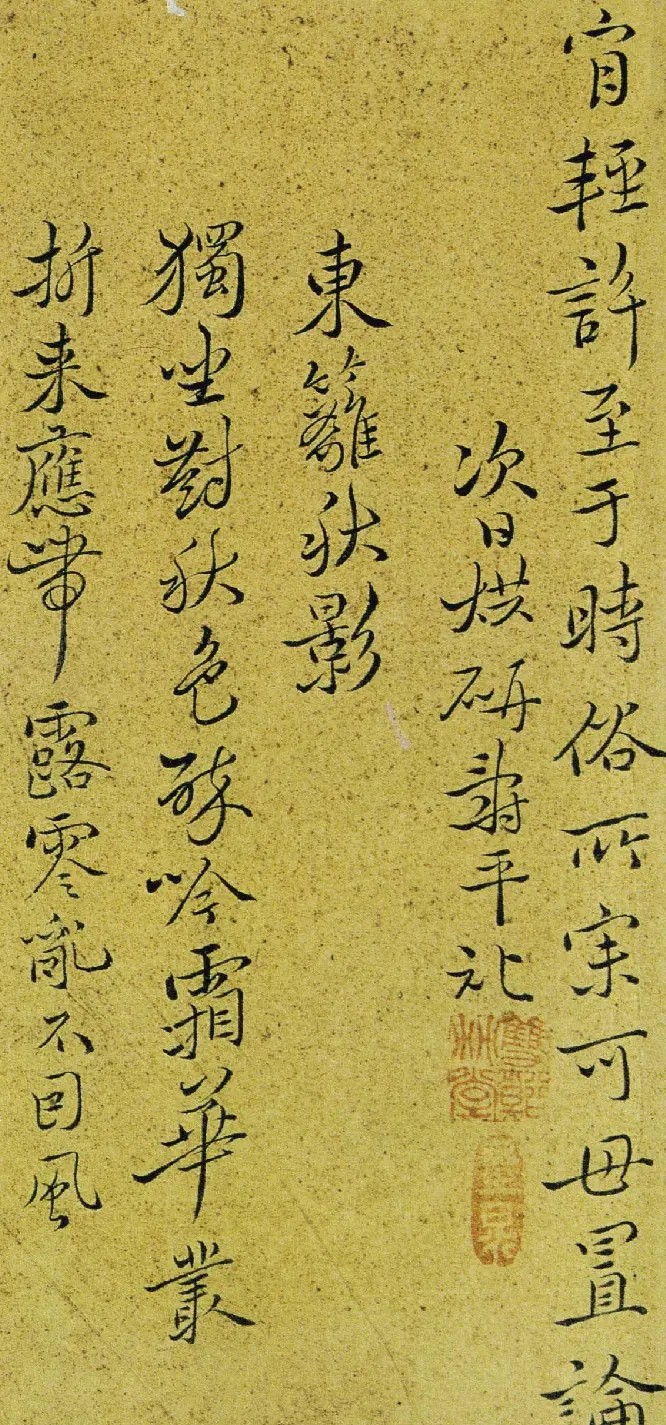 肎輕許至于時俗所可毋置論
次日烘研壽平記
東籬秋影
獨坐對秋色醉吟霜華叢
折来應帶露零亂不因風